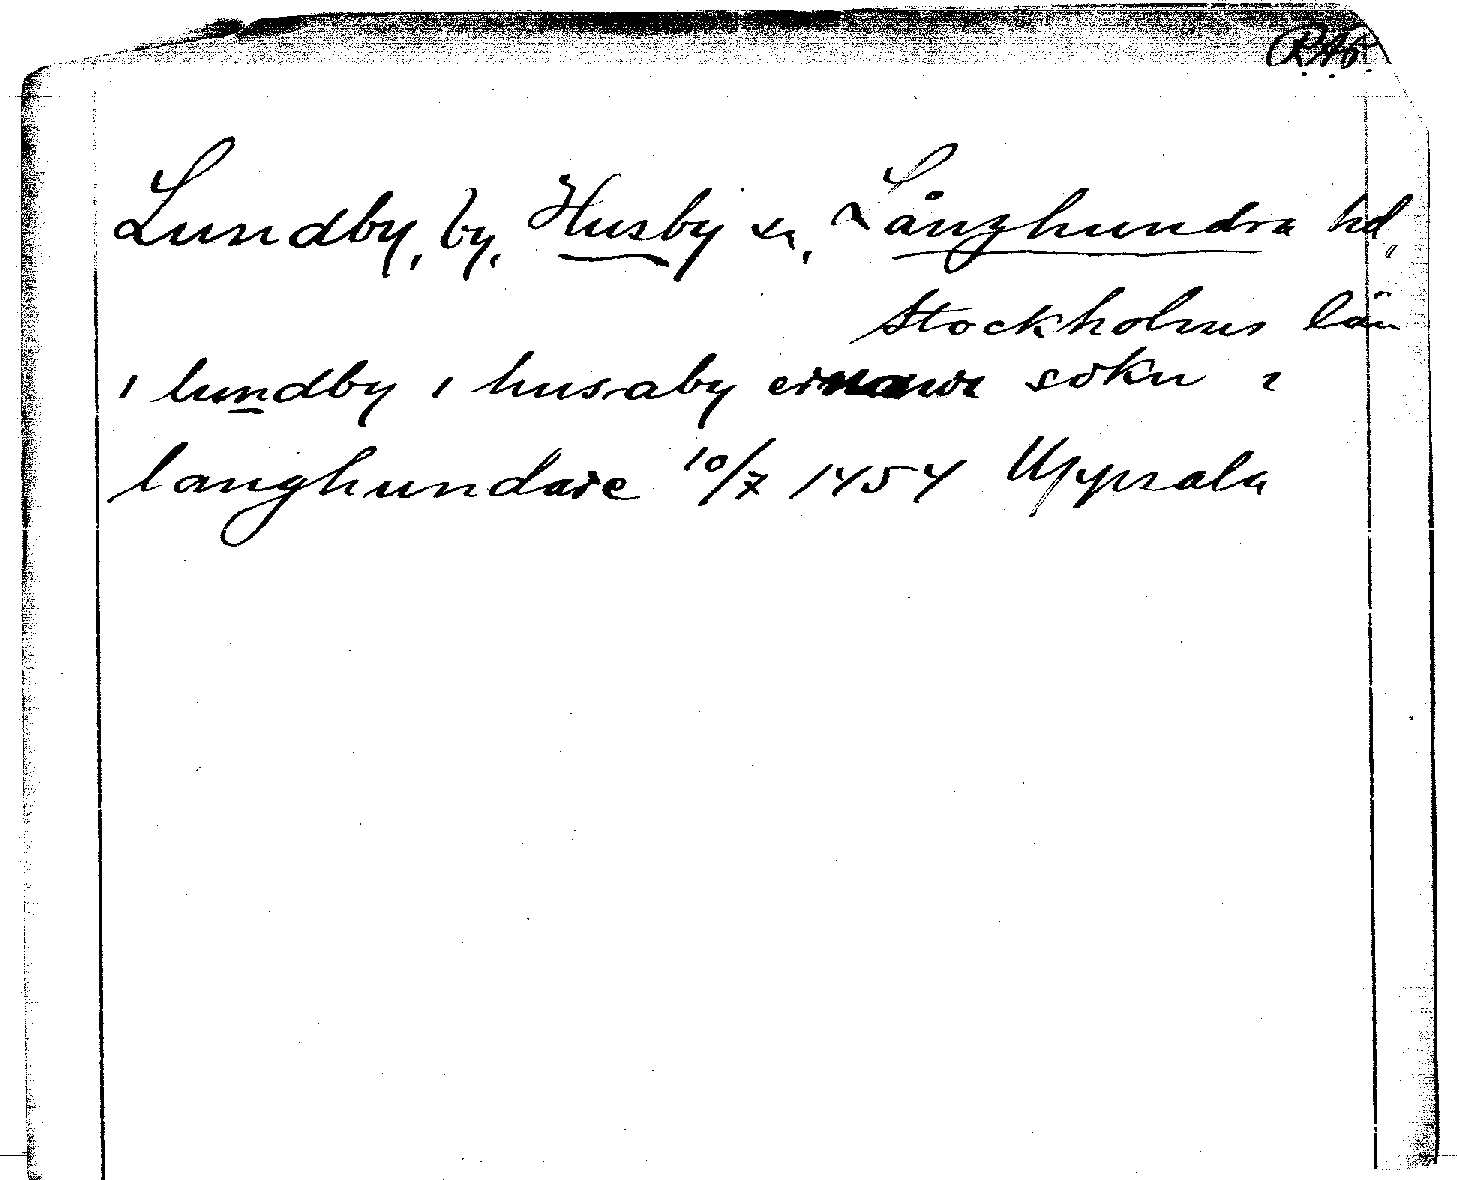 R.A.ö.
Lundby, by, Husby sn, Långhundra hd,
Stockholms län
i lundby i husaby sokn i
langhundare 10/7 1454 Uppsala